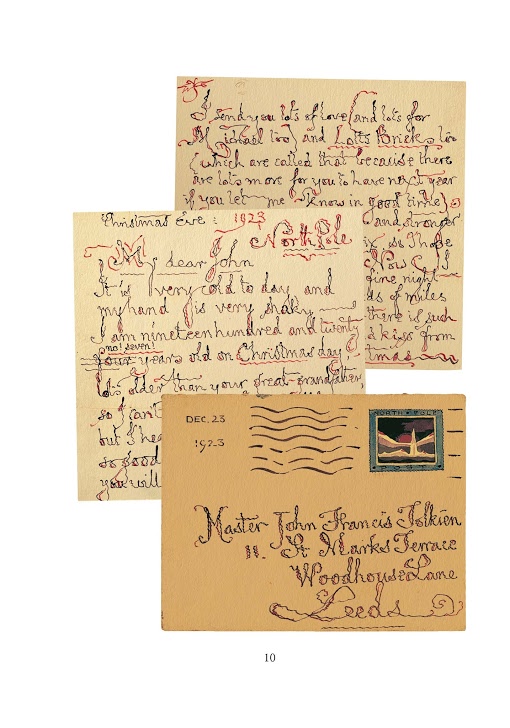 I send you lots of love (and lots for
Michael too) and Lotts Bricks too
(which are called that because there
are lots more for you to have next year
if you let me know in good time)
and stronger
so I hope
Now I
fine night
s of miles
there is such
a kiss from
tmas
Christmas Eve: 1923
North Pole
My dear John
It is very cold to day and
my hand is very shaky
I am nineteenhundred and twenty
no! seven!
four years old on Christmas day
lots older than your great-grandfather,
so I can't
but I hea
so good
you will
DEC. 23
1923
NORTH POLE
Master John Francis Tolkien
11. St Marks Terrace
Woodhouse Lane
Leeds
10